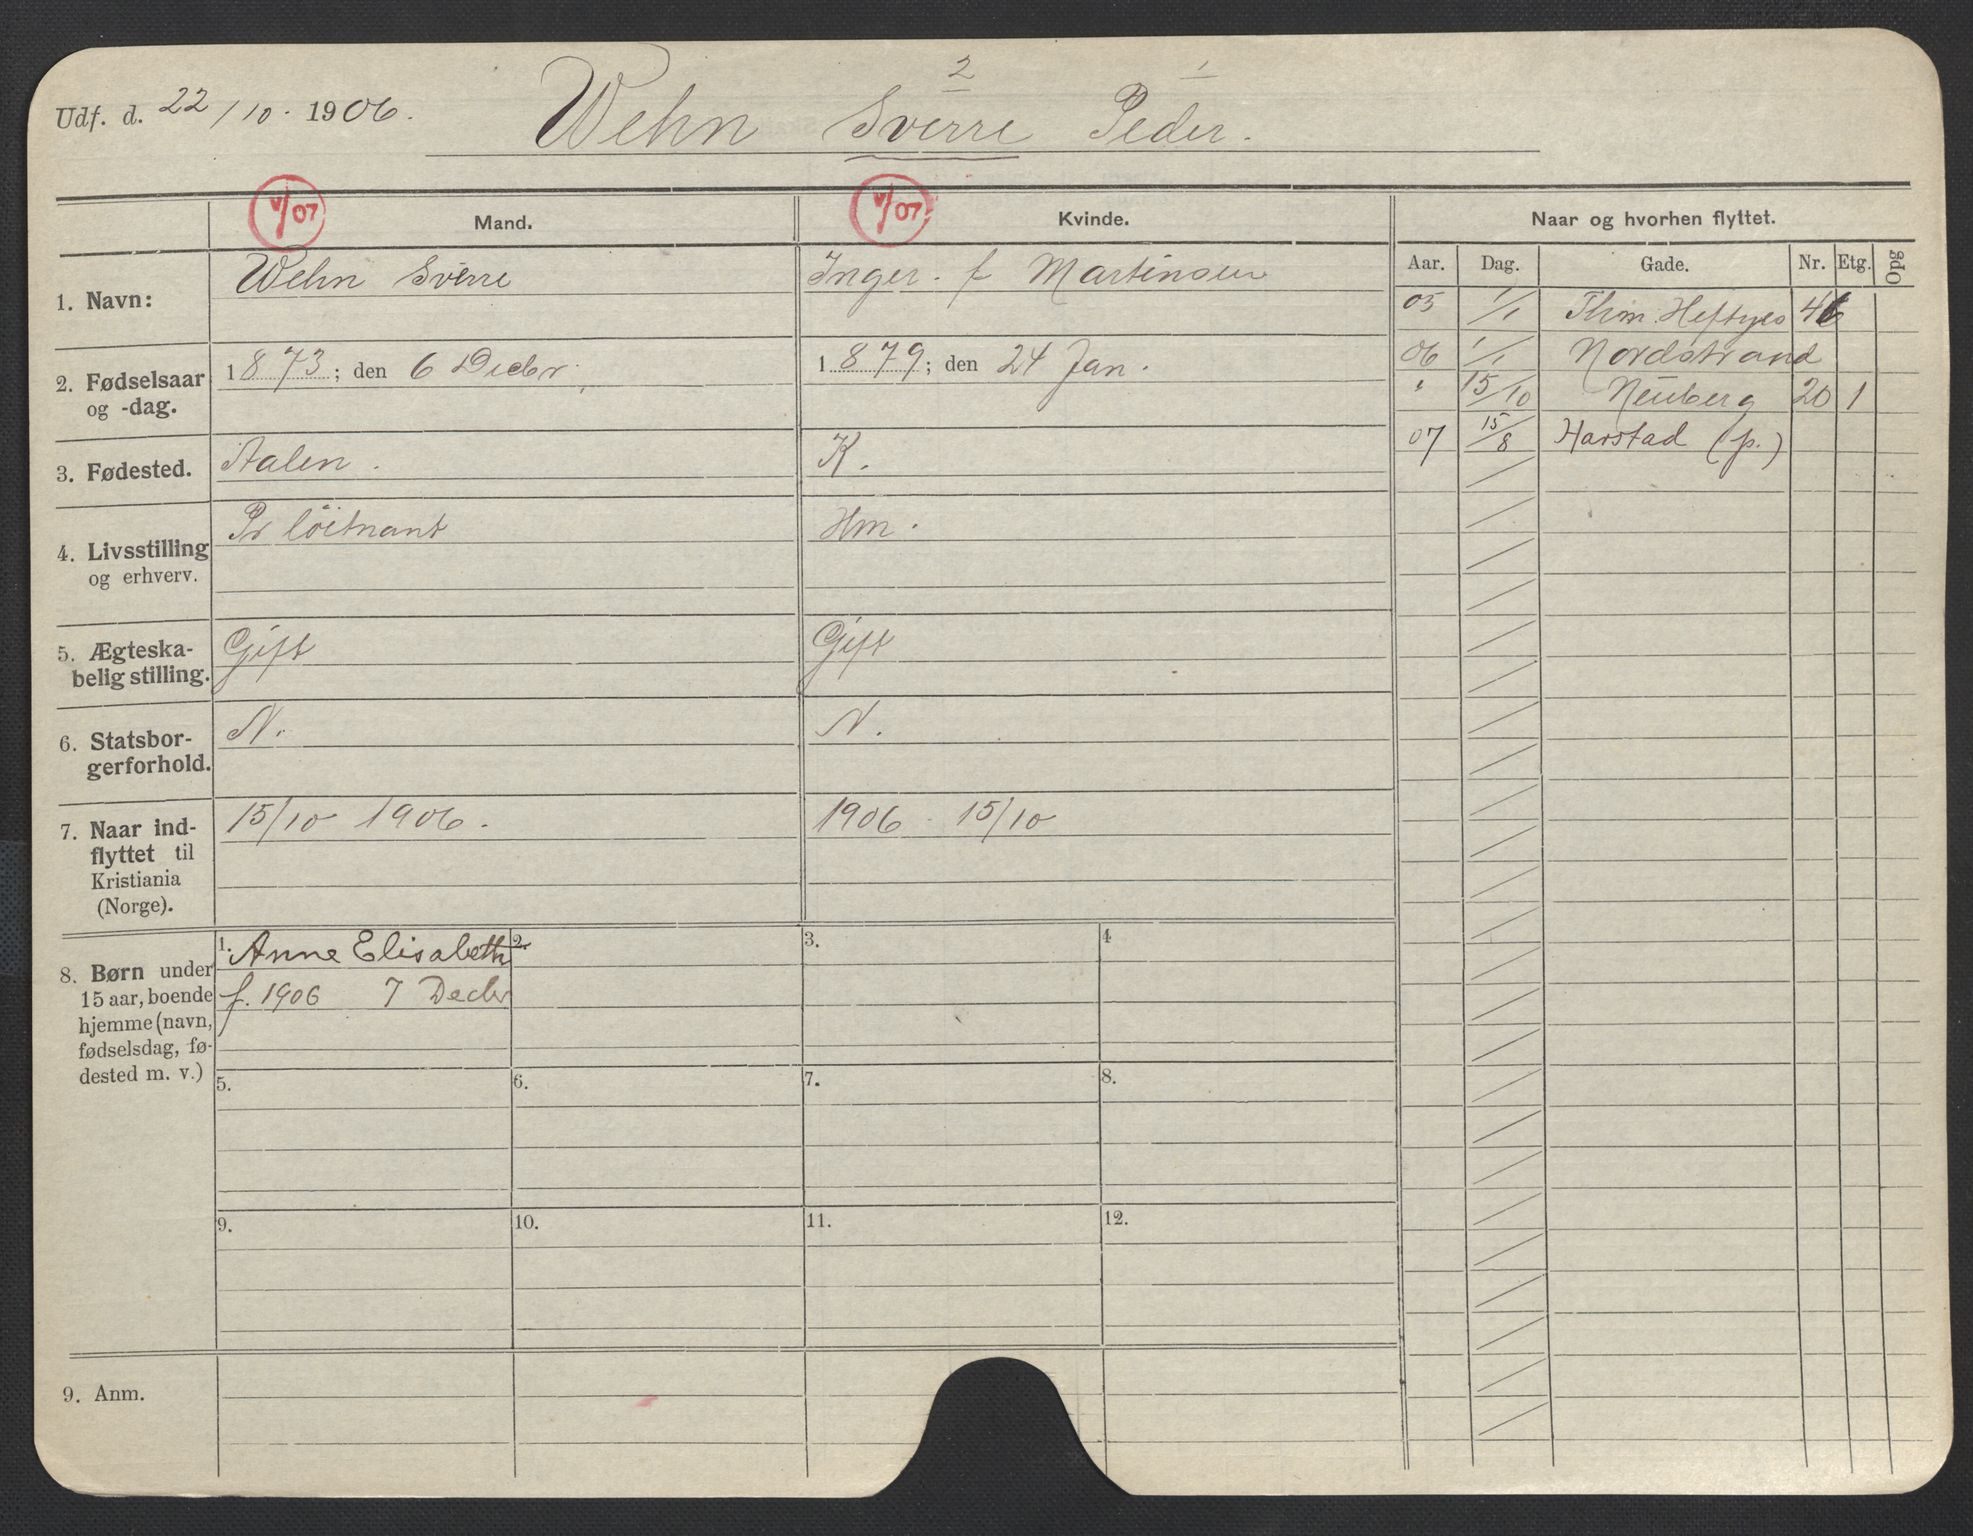 Udf. d. 22/10. 1906.
2 1
Wehn Sverre Peder.
V/07 Mand.
V/07 Kvinde.
Naar og hvorhen flyttet.
Aar. Dag. Gade. Nr. Etg. Opg
1. Navn:
Wehn Sverre
Inger. f Martinsen
2. Fødselsaar
og -dag.
1873; den 6 Decbr.
1879; den 24 Jan.
3. Fødested.
Aalen.
K.
4. Livsstilling
og erhverv.
Pr löitnant
Hm.
5. Ægteska-
belig stilling.
Gift
Gift
6. Statsbor-
gerforhold.
N.
N.
7. Naar ind-
flyttet til
Kristiania
(Norge).
15/10 1906.
1906 15/10
8. Børn under
15 aar, boende
hjemme (navn,
fødselsdag, fø-
dested m. v.)
1. Anne Elisabeth
f. 1906 7 Decbr
2.
3.
4
5.
6.
7.
8.
9.
10.
11.
12.
9. Anm.
05 1/1 Thm. Heftyes
06 1/1 Nordstrand
" 15/10 Neuberg 20 1
07 15/8 Harstad (p.)